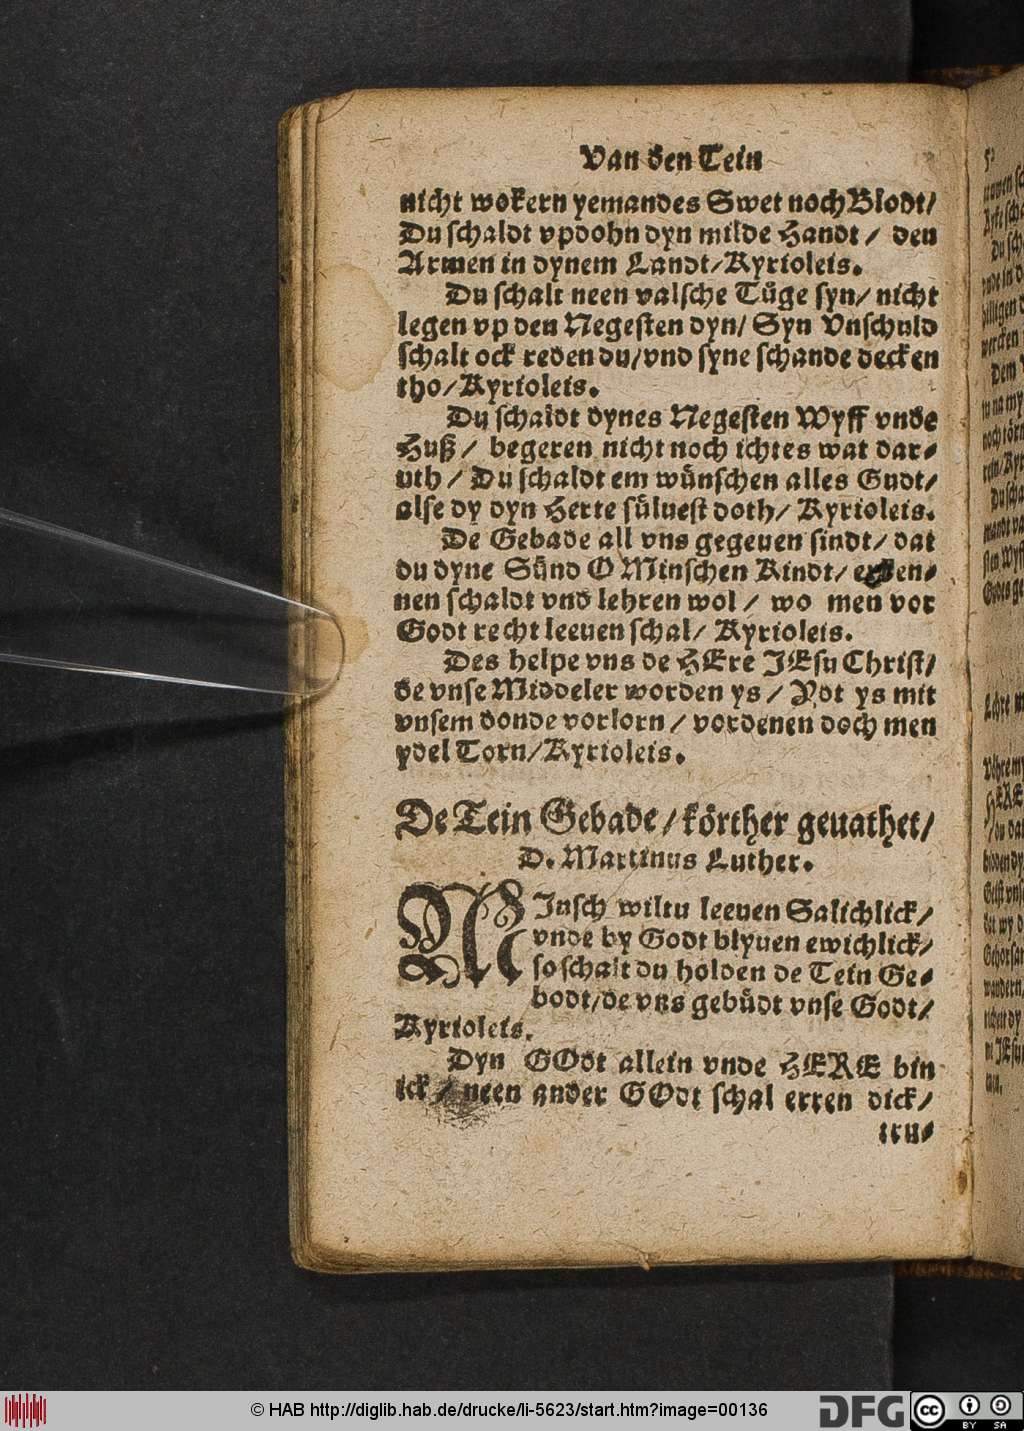 Van den Tein
nicht wokern yemandes Swet noch Blodt/
Du schaldt vpdohn dyn milde Handt / den
Armen in dynem Landt/Kyrioleis.
Du schalt neen valsche Tüge syn/ nicht
legen vp den Negesten dyn/ Syn Vnschuld
schalt ock reden du/vnd syne schande decken
tho/Kyrioleis.
Du schaldt dynes Negesten Wyff vnde
Huß / begeren nicht noch ichtes wat dar⸗
uth / Du schaldt em wünschen alles Gudt/
alse dy dyn Herte süluest doth/ Kyrioleis.
De Gebade all vns gegeuen sindt/ dat
du dyne Sünd O Minschen Kindt/ erken⸗
nen schaldt vnd lehren wol / wo men vor
Godt recht leeuen schal/ Kyrioleis.
Des helpe vns de HEre JEsu Christ/
de vnse Middeler worden ys / Ydt ys mit
vnsem donde vorlorn / vordenen doch men
ydel Torn/Kyrioleis.
De Tein Gebade/körther geuathet/
D. Martinus Luther.
MInsch wiltu leeuen Salichlick/
vnde by Godt blyuen ewichlick/
so schalt du holden de Tein Ge⸗
bodt/de vns gebüdt vnse Godt/
Kyrioleis.
Dyn GOdt allein vnde HERE bin
ick / neen ander GOdt schal erren dick/
tru⸗
© HAB http://diglib.hab.de/drucke/li-5623/start.htm?image=00136
DFG
cc BY SA